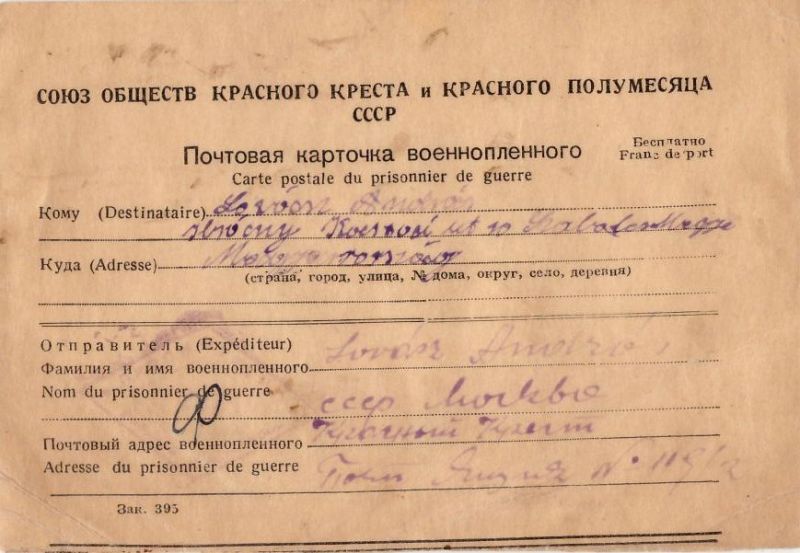 СОЮЗ ОБЩЕСТВ КРАСНОГО КРЕСТА и КРАСНОГО ПОЛУМЕСЯЦА
СССР
Бесплатно
Почтовая карточка военнопленного
Franc de port
Carte postale du prisonnier de guerre
Кому (Destinataire) Lovász András
út
Куда (Adresse) Magyarország
(страна, город, улица, № дома, округ, село, деревня)
Отправитель (Expéditeur)
Lovász András
Фамилия и имя военнопленного
Nom du prisonnier de guerre
СССР Москва
Ф
Красный Крест
Почтовый адрес военнопленного
Adresse du prisonnier de guerre
Почт Ящик №
Зак. 395